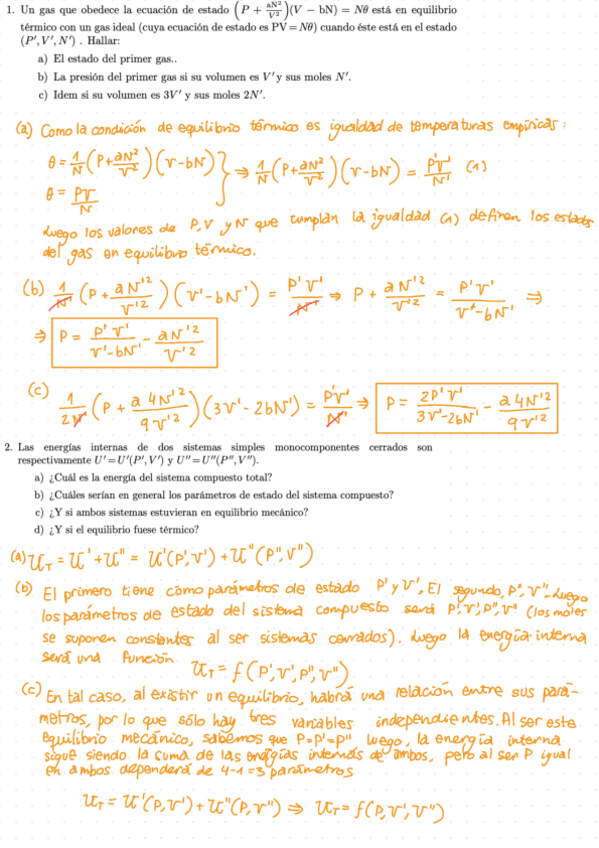 1. Un gas que obedece la ecuación de estado (P + aN²/V²)(V − bN) = Nθ está en equilibrio
térmico con un gas ideal (cuya ecuación de estado es PV = Nθ) cuando éste está en el estado
(P′, V′, N′) . Hallar:
a) El estado del primer gas..
b) La presión del primer gas si su volumen es V′ y sus moles N′.
c) Idem si su volumen es 3V′ y sus moles 2N′.
(a) Como la condición de equilibrio térmico es igualdad de temperaturas empíricas:
θ = 1/N (P + aN²/V²)(V − bN)
θ = PV/N
} ⇒ 1/N (P + aN²/V²)(V − bN) = P'V'/N' (1)
Luego los valores de P, V y N que cumplan la igualdad (1) definen los estados
del gas en equilibrio térmico.
(b) 1/N' (P + aN'²/V'²)(V' − bN') = P'V'/N' ⇒ P + aN'²/V'² = P'V'/(V' − bN') ⇒
⇒ P = P'V'/(V' − bN') − aN'²/V'²
(c) 1/2N' (P + a4N'²/9V'²)(3V' − 2bN') = P'V'/N' ⇒ P = 2P'V'/(3V' − 2bN') − a4N'²/9V'²
2. Las energías internas de dos sistemas simples monocomponentes cerrados son
respectivamente U′ = U′(P′, V′) y U″ = U″(P″, V″).
a) ¿Cuál es la energía del sistema compuesto total?
b) ¿Cuáles serían en general los parámetros de estado del sistema compuesto?
c) ¿Y si ambos sistemas estuvieran en equilibrio mecánico?
d) ¿Y si el equilibrio fuese térmico?
(a) U_T = U' + U" = U'(P', V') + U"(P", V")
(b) El primero tiene como parámetros de estado P' y V', El segundo, P", V". Luego
los parámetros de estado del sistema compuesto será P', V', P", V" (los moles
se suponen constantes al ser sistemas cerrados). Luego la energía interna
será una función U_T = f(P', V', P", V")
(c) En tal caso, al existir un equilibrio, habrá una relación entre sus pará-
metros, por lo que sólo hay tres variables independientes. Al ser este
equilibrio mecánico, sabemos que P=P'=P" luego, la energía interna
sigue siendo la suma de las energías internas de ambos, pero al ser P igual
en ambos dependerá de 4-1=3 parámetros
U_T = U'(P, V') + U"(P, V") ⇒ U_T = f(P, V', V")